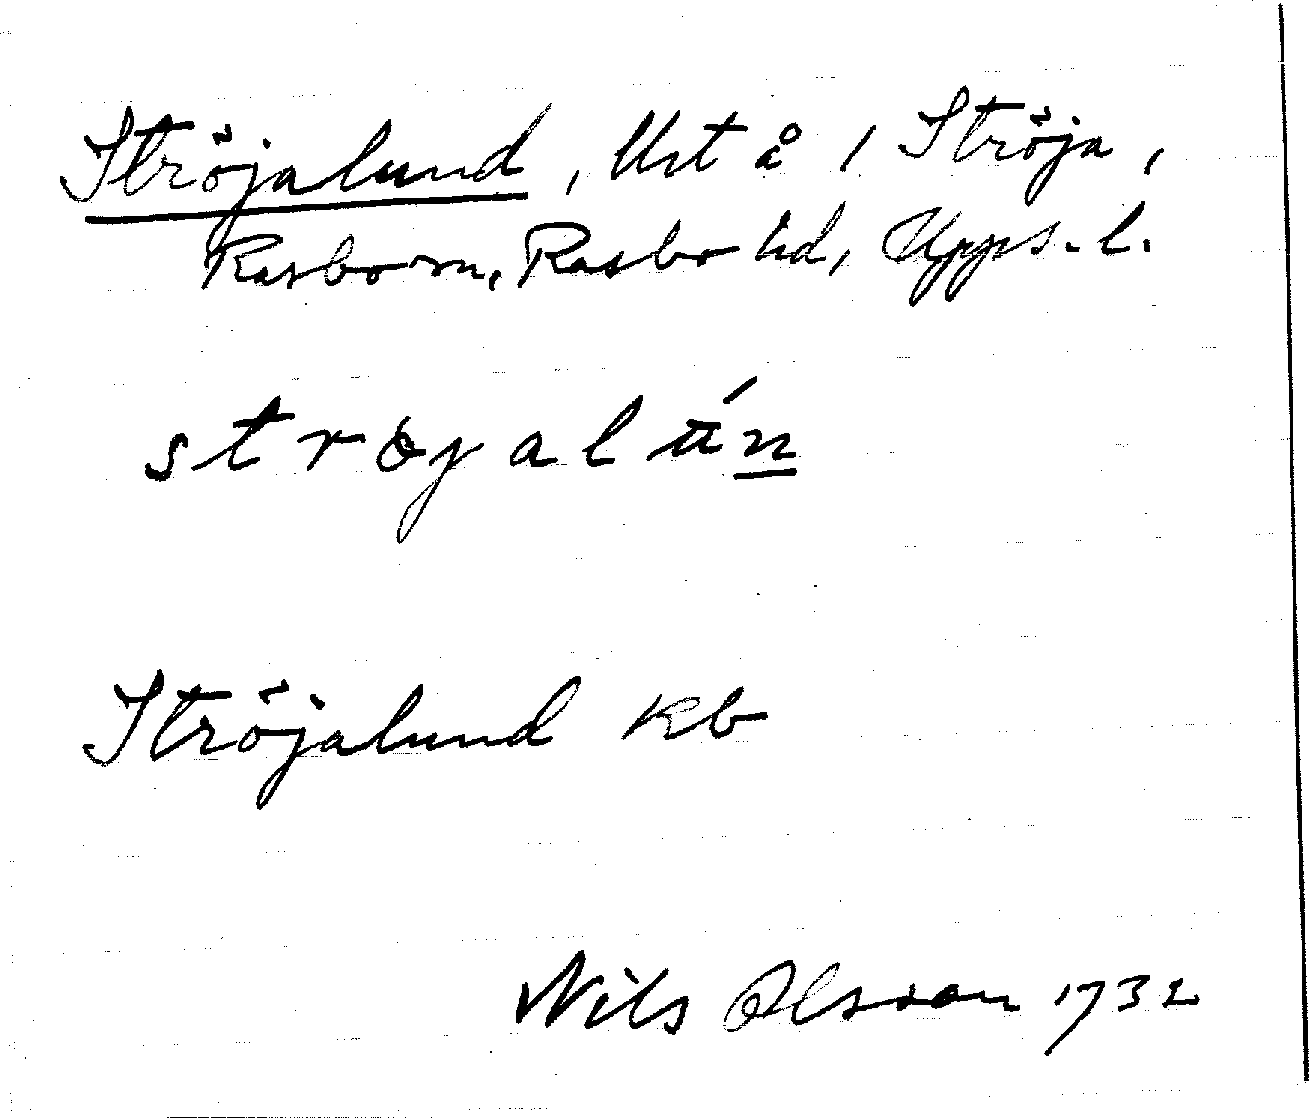 Ströjalund, Urt å 1 Ströja,
Rasbo sn, Rasbo hd, Upps. l.
strøjalún
Ströjalund kb
Nils Olsson 1732